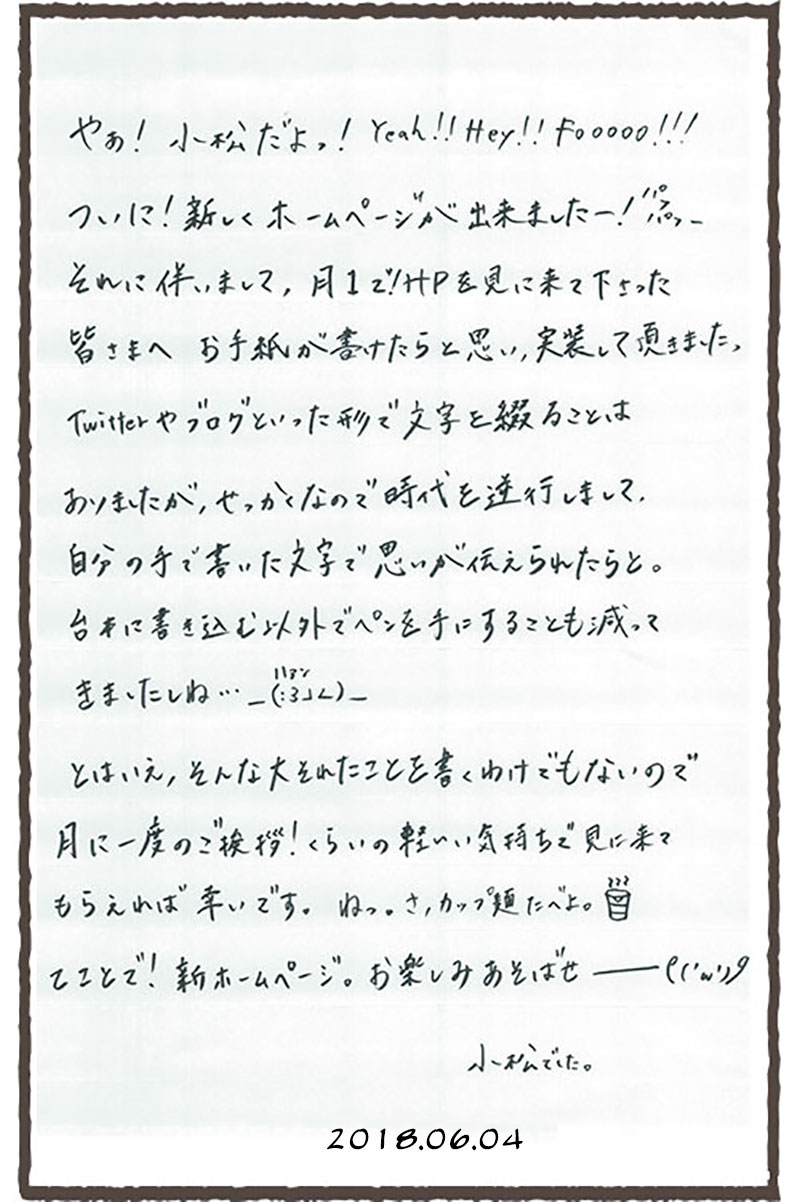 やぁ！小松だよっ！Yeah!! Hey!! Fooooo!!!
ついに！新しくホームページが出来ましたー！パフパフー
それに伴いまして、月1で！HPを見に来て下さった
皆さまへ お手紙が書けたらと思い、実装して頂きましたっ
Twitterやブログといった形で文字を綴ることは
おりましたが、せっかくなので時代を逆行しまして、
自分の手で書いた文字で思いが伝えられたらと。
台本に書き込む以外でペンを手にすることも減って
きましたしね… _(:3」∠)_
とはいえ、そんな大それたことを書くわけでもないので
月に一度のご挨拶！くらいの軽いい気持ちで見に来て
もらえれば幸いです。ねっ。さ、カップ麺たべよ。
てことで！新ホームページ。お楽しみあそばせ ――― ('ω')
小松でした。
2018.06.04